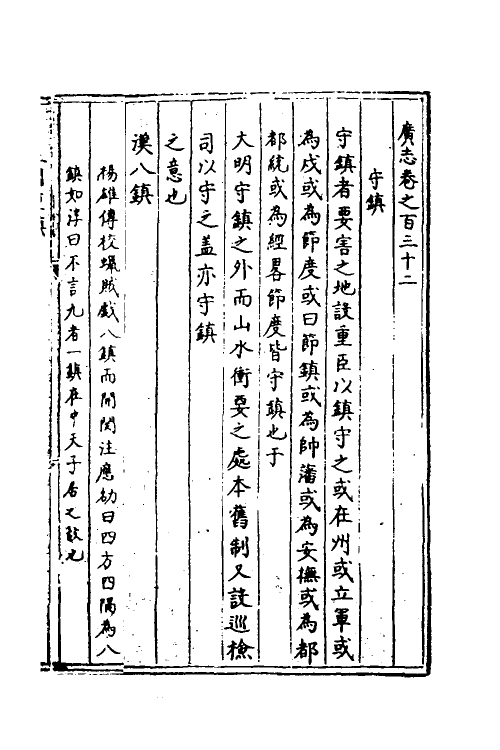 廣志卷之百三十二
守鎮
守鎮者要害之地設重臣以鎮守之或在州或立軍或
為戍或為節度或曰節鎮或為帥藩或為安撫或為都
都統或為經畧節度皆守鎮也于
大明守鎮之外而山水衝要之處本舊制又設巡檢
司以守之盖亦守鎮
之意也
漢八鎮
楊雄傳校獵賦戲八鎮而開関注應劭曰四方四隅為八
鎮如淳曰不言九者一鎮在中天子居之故也